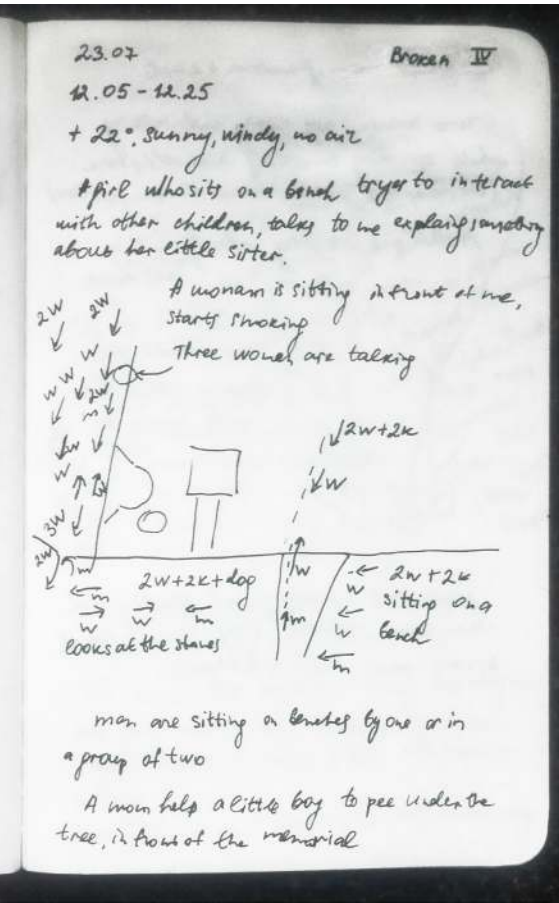 23.07
Broken IV
12.05 - 12.25
+ 22°, sunny, windy, no air
A girl who sits on a bench tryes to interact
with other children, talks to me explaing something
about her little sister.
A womam is sitting in front of me,
starts smoking
Three women are talking
2W 2W
W
W W 2W
m
2W
W
3W
2W
m
2W+2K
W
W
m
m
2W+2K+dog
W W m
looks at the
2W+2K
sitting on a
bench
W
W
m
men are sitting on benches by one or in
a group of two
A mom help a little boy to pee under the
tree, in front of the memorial